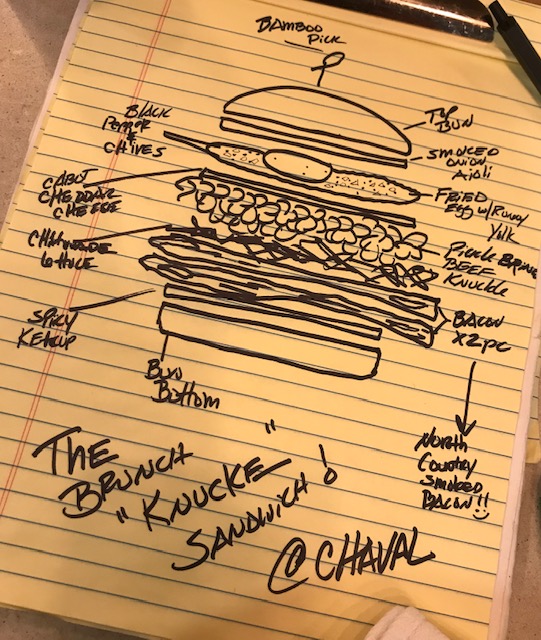 BAMBOO
PICK
BLACK
PEPPER
&
CHIVES
TOP
BUN
SMOKED
ONION
AJOLI
CABOT
CHEDDAR
CHEESE
FRIED
EGG w/ Runny
Yolk
CHIFFONADE
LETTUCE
Pickle Brine
BEEF
KNUCKLE
SPICY
KETCHUP
BACON
x2 pc
BUN
BOTTOM
NORTH
COUNTRY
SMOKED
BACON!!
THE
BRUNCH "
"KNUCKE
SANDWICH!
@CHAVAL